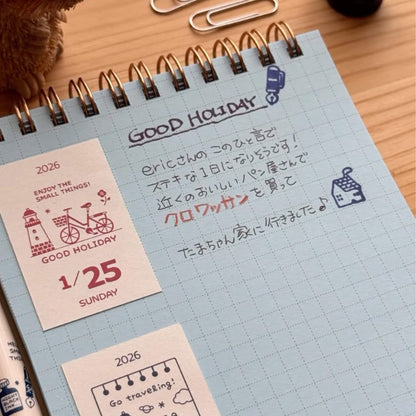 GOOD HOLIDAY
ericさんの このひと言で
ステキな1日になりそうです!
近くのおいしいパン屋さんで
クロワッサンを買って
たまちゃん家に行きました♪
2026
ENJOY THE
SMALL THINGS!
GOOD HOLIDAY
1/25
SUNDAY
2026
Go traveling!